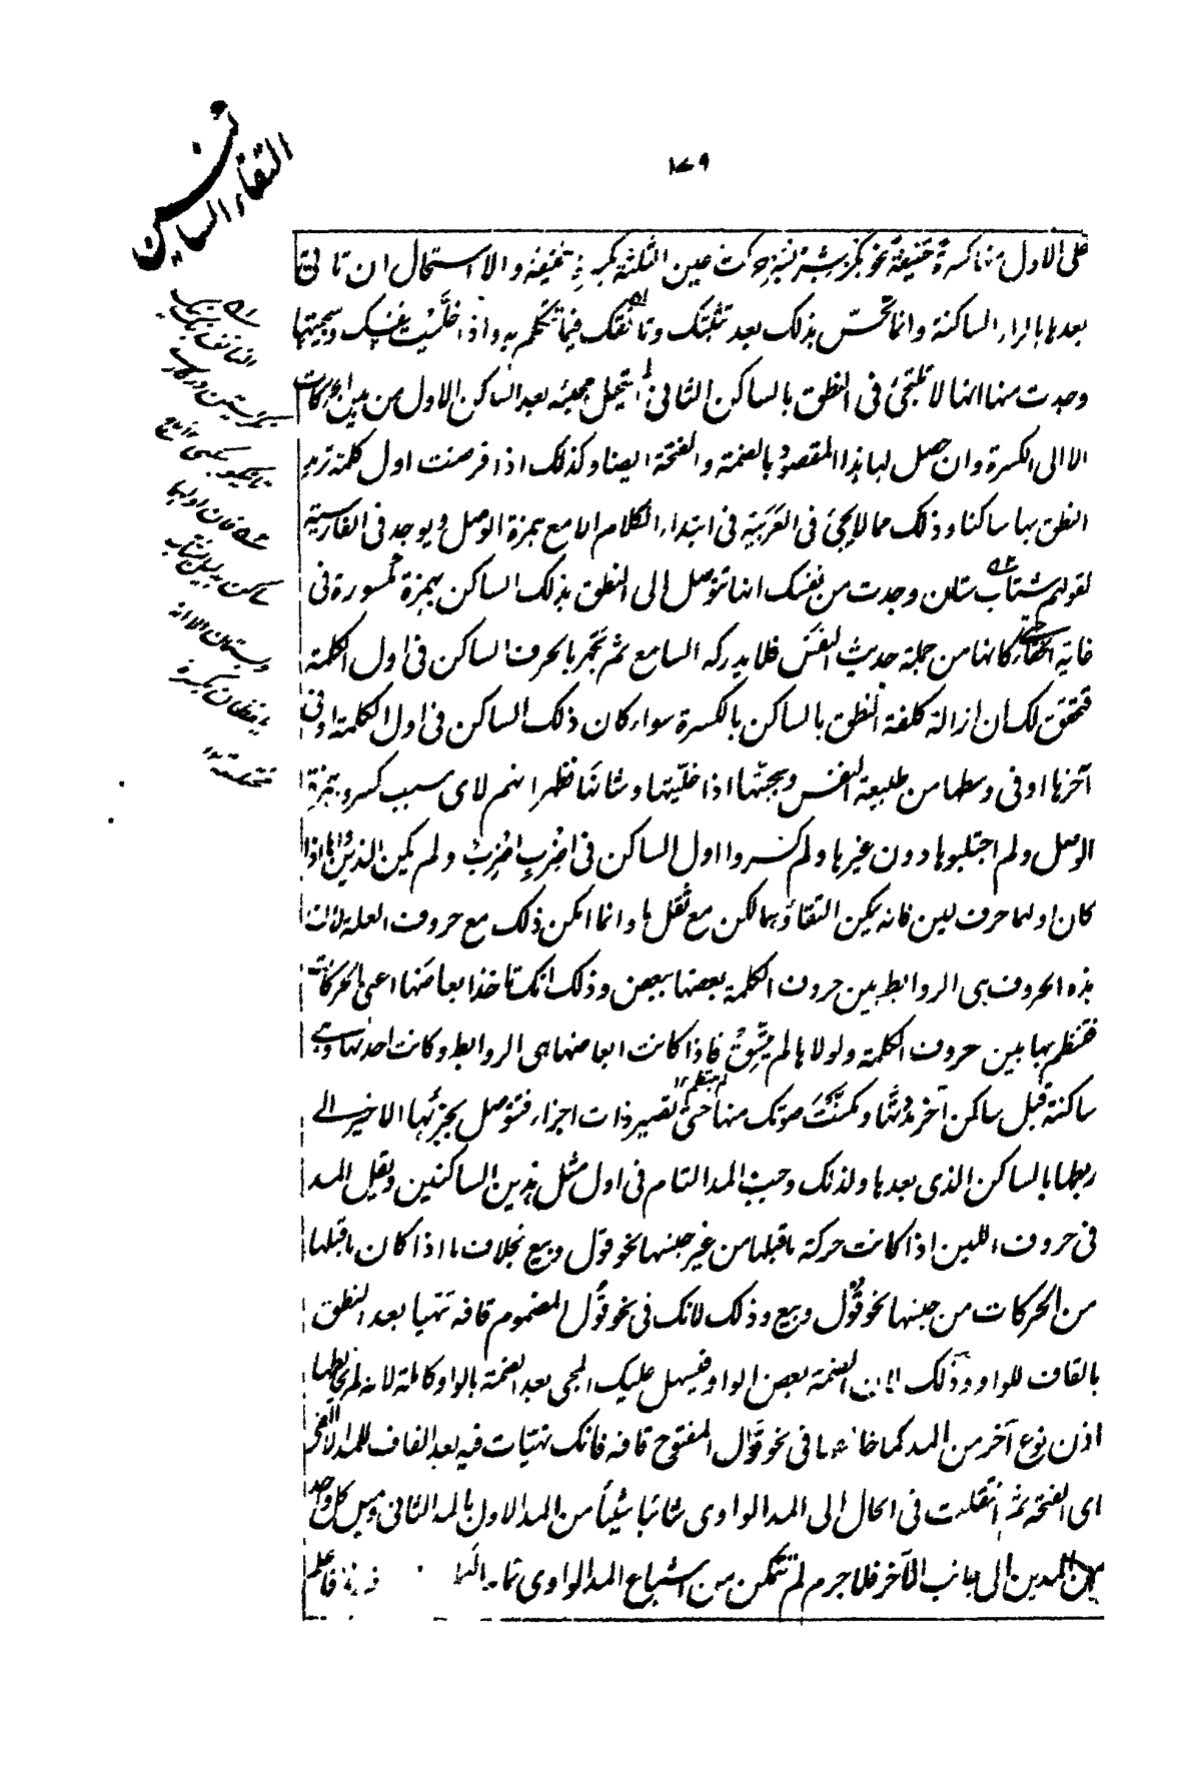 ١٧٩
التقاء الساكنين
على الاول منها كسرة خفيفة نحو بكر بشر بسر حركت عين الثلثة بكسرة خفيفة والا استحال ان تاتى
بعدها بالراء الساكنة وانما تحس بذلك بعد تثبتك وتانقك فيما تتكلم به واذا خليت نفسك وسجيتها
وجدت منها انها لا تلتجئ فى النطق بالساكن الثانى المستحيل مجيئه بعد الساكن الاول من بين الحركات
الا الى الكسرة وان حصل لها هذا المقصود بالضمة والفتحة ايضا وكذلك اذا فرضت اول كلمة تريد
النطق بها ساكنا وذلك مما لا يجئ فى العربية فى ابتداء الكلام الا مع همزة الوصل ويوجد فى الفارسية
كقولهم شتاب ستان وجدت من نفسك انها تتوصل الى النطق بذلك الساكن بهمزة مكسورة فى
غاية الخفاء كانها من جملة حديث النفس فلا يدركه السامع ثم تجهر بالحرف الساكن فى اول الكلمة
فتحقق لك ان ازالة كلفة النطق بالساكن بالكسرة سواء كان ذلك الساكن فى اول الكلمة او فى
آخرها او فى وسطها من طبيعة النفس وسجيتها اذا خليتها وشانها فظهر انهم لاى سبب كسروا همزة
الوصل ولم اجتلبوها دون غيرها ولم كسروا اول الساكن فى اضرب اضرب ولم يكن الذين الا اذا
كان اولهما حرف لين فانه يمكن التقاؤهما لكن مع ثقل ما وانما امكن ذلك مع حروف العلة لان
هذه الحروف هى الروابط بين حروف الكلمة بعضها ببعض وذلك انك تاخذ ابعاضها اعنى الحركات
فتنظم بها بين حروف الكلمة ولولاها لم تتسق فاذا كانت ابعاضها هى الروابط وكانت احدٰها وهى
ساكنة قبل ساكن آخر مددتها ومكنت صوتك منها حتى تصير ذات اجزاء فتتوصل بجزئها الاخير الى
ربطها بالساكن الذى بعدها ولذلك وجب المد التام فى اول مثل هذين الساكنين ويقل المد
فى حروف اللين اذا كانت حركة ما قبلها من غير جنسها نحو قول وبيع بخلاف ما اذا كان ما قبلها
من الحركات من جنسها نحو قول وبيع وذلك لانك فى نحو قول المضموم قافه تتهيا بعد النطق
بالقاف للواو وذلك لان الضمة بعض الواو فيسهل عليك المجئ بعد الضمة بالواو كاملة لانه لم يخالطها
اذن نوع آخر من المد كما خالطها فى نحو قول المفتوح قافه فانك تهيات فيه بعد القاف للمد الالفى
اى الفتحة ثم انتقلت فى الحال الى المد الواوى شائبا شيئا من المد الاول بالمد الثانى وميل كل واحد
من المدين الى جانب الآخر فلا جرم لم تتمكن من اشباع المد الواوى تماما
فاعلم